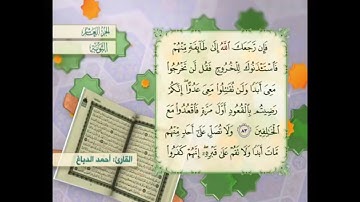 الجزء العاشر
التوبة
فَإِن رَّجَعَكَ اللَّهُ إِلَىٰ طَائِفَةٍ مِّنْهُمْ
فَاسْتَأْذَنُوكَ لِلْخُرُوجِ فَقُل لَّن تَخْرُجُوا
مَعِيَ أَبَدًا وَلَن تُقَاتِلُوا مَعِيَ عَدُوًّا إِنَّكُمْ
رَضِيتُم بِالْقُعُودِ أَوَّلَ مَرَّةٍ فَاقْعُدُوا مَعَ
الْخَالِفِينَ ٨٣ وَلَا تُصَلِّ عَلَىٰ أَحَدٍ مِّنْهُم
مَّاتَ أَبَدًا وَلَا تَقُمْ عَلَىٰ قَبْرِهِ إِنَّهُمْ كَفَرُوا
القارئ: أحمد الدباغ